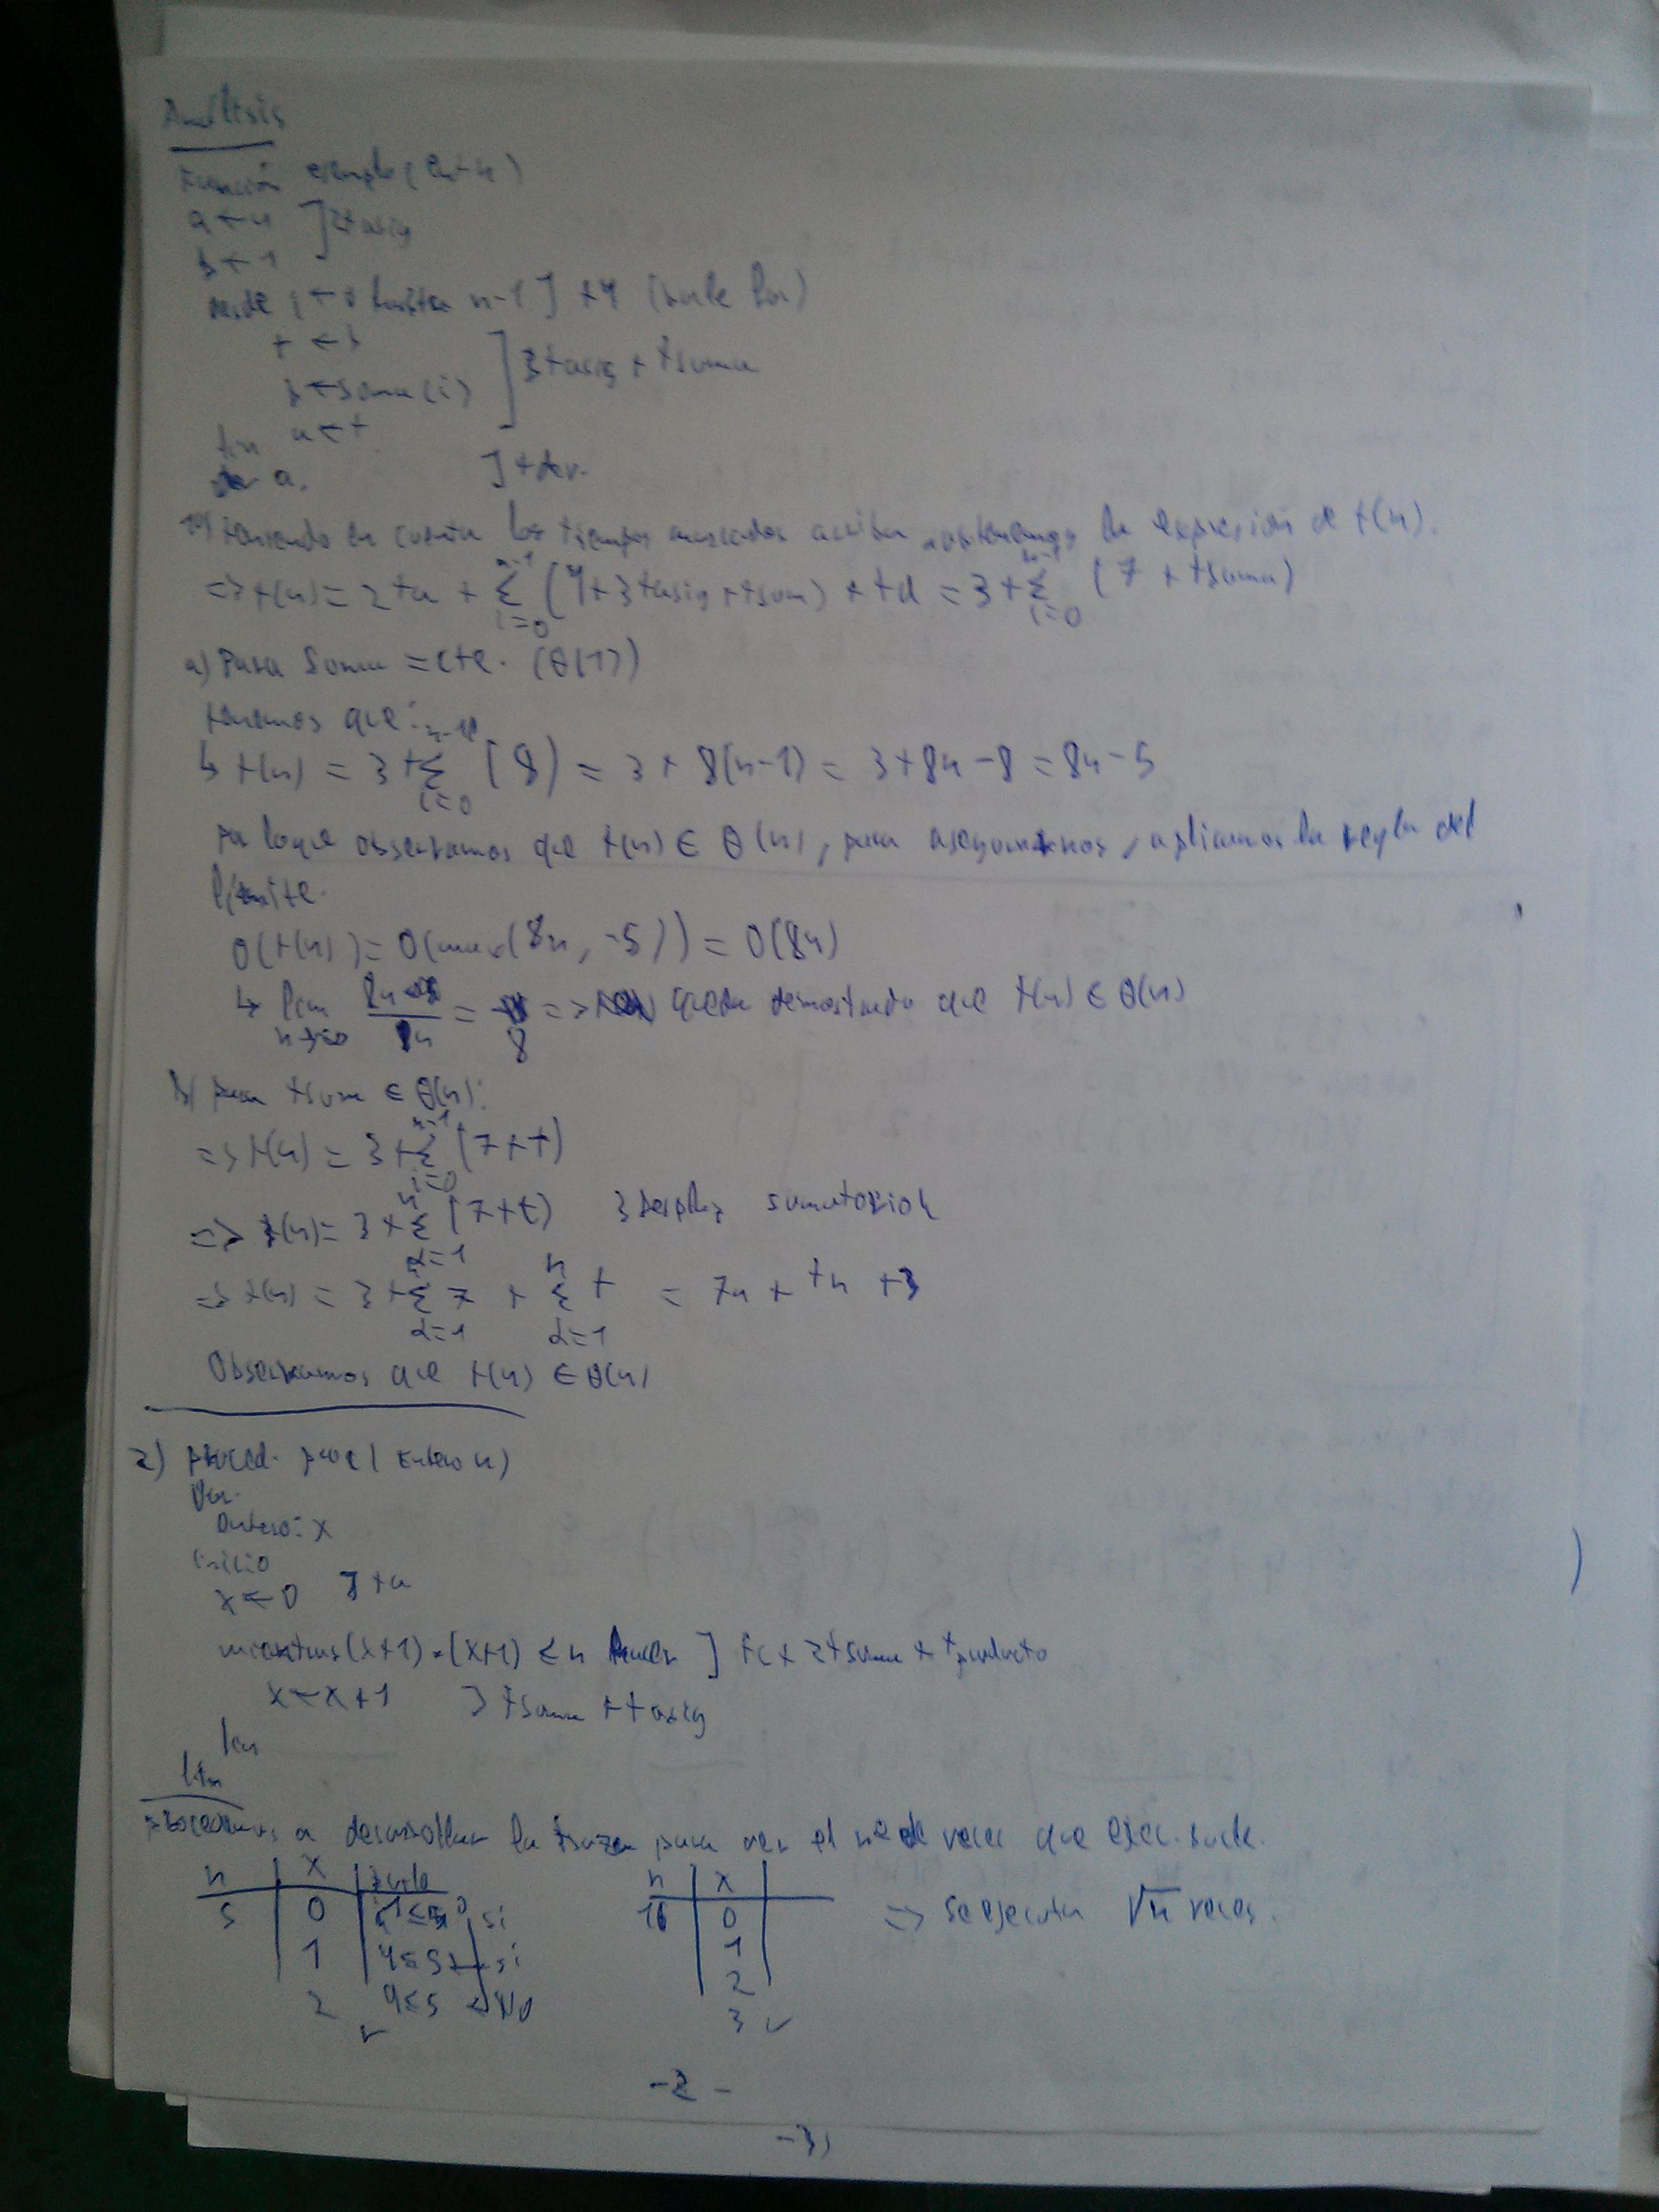 Análisis
Función ejemplo (Ent n)
a ← n ] 2tasig
b ← 1
desde i ← 0 hasta n-1 ] +4 (bucle for)
t ← b
b ← suma(i) ] 3tasig + tsuma
a ← t
fin
a. ] tdev.
Teniendo en cuenta los tiempos marcados arriba, obtenemos la expresión de t(n).
=> t(n) = 2ta + Σ_{i=0}^{n-1} (4+3tasig+tsum) + td = 3 + Σ_{i=0}^{n-1} (7 + tsuma)
a) Para Suma = cte. (θ(1))
tenemos que:
↳ t(n) = 3 + Σ_{i=0}^{n-1} (8) = 3 + 8(n-1) = 3+8n-8 = 8n-5
por lo que observamos que t(n) ∈ θ(n), para asegurarnos, aplicamos la regla del
límite.
O(t(n)) = O(max(8n, -5)) = O(8n)
↳ lim_{n→∞} = 8 => queda demostrado que t(n) ∈ θ(n)
b) para tsum ∈ θ(n):
=> t(n) = 3 + Σ_{i=0}^{n-1} (7+t)
=> t(n) = 3 + Σ_{α=1}^{n} (7+t) } Desplaz sumatorio
=> t(n) = 3 + Σ_{α=1}^{n} 7 + Σ_{α=1}^{n} t = 7n + tn + 3
Observamos que t(n) ∈ θ(n)
2) Proced. proc (Entero n)
Var.
Entero: x
inicio
x ← 0 ] ta
mientras (x+1) * (x+1) ≤ n hacer ] tc + 2tsuma + tproducto
x ← x+1 ] tsuma + tasig
fin
fin
Procedemos a desarrollar la traza para ver el nº de veces que ejec. bucle.
n | x | bucle n | x |
5 0 1≤5 si 16 0 => se ejecuta √n veces.
1 4≤5 si 1
2 9≤5 No 2
3 ✓
-2-
-3)